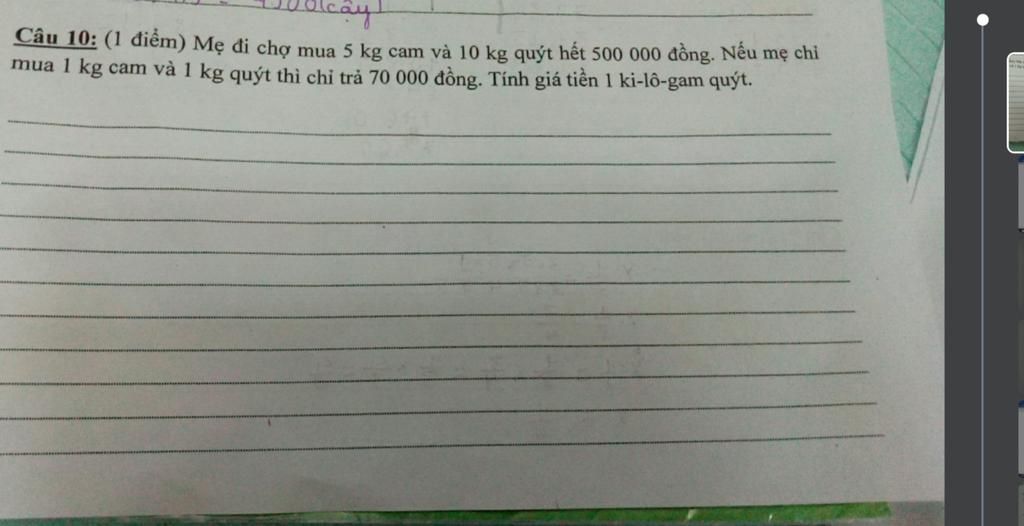 (cây)
Câu 10: (1 điểm) Mẹ đi chợ mua 5 kg cam và 10 kg quýt hết 500 000 đồng. Nếu mẹ chỉ
mua 1 kg cam và 1 kg quýt thì chỉ trả 70 000 đồng. Tính giá tiền 1 ki-lô-gam quýt.